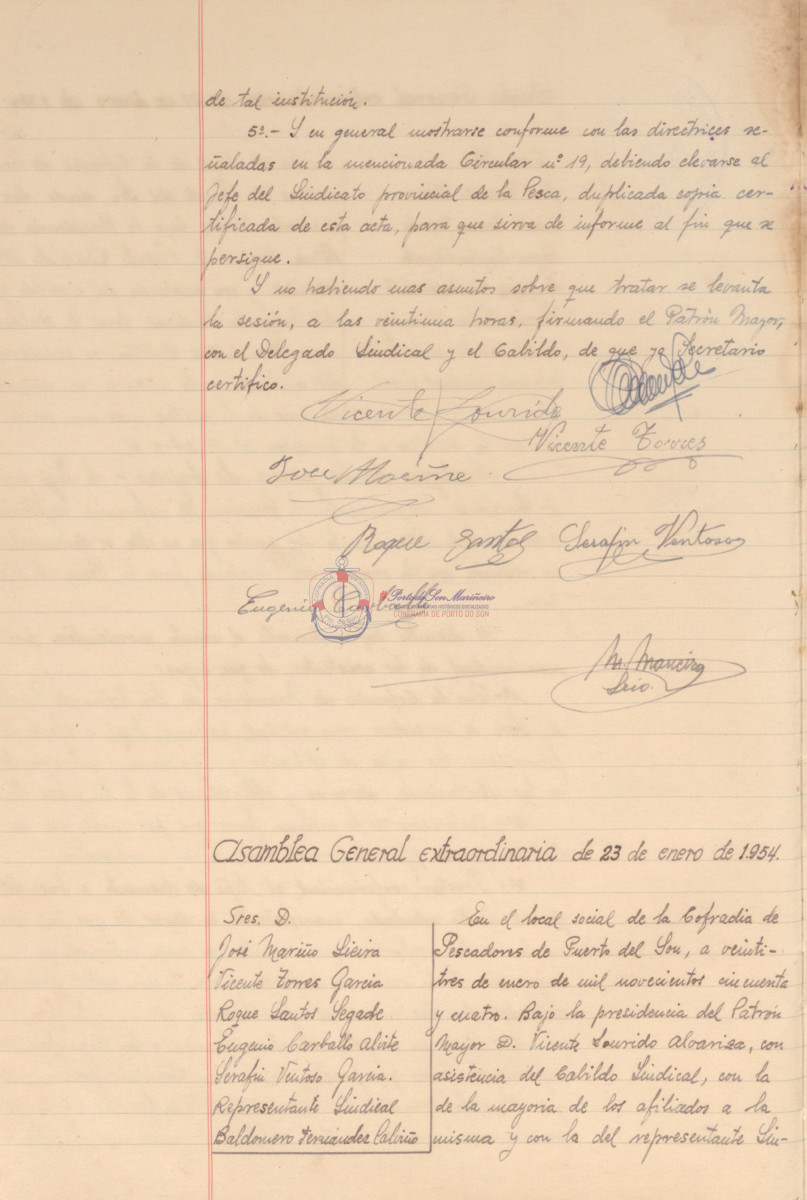 de tal institución.
5º.- Y en general mostrarse conforme con las directrices se-
ñaladas en la mencionada Circular nº 19, debiendo elevarse al
Jefe del Sindicato provincial de la Pesca, duplicada copia cer-
tificada de esta acta, para que sirva de informe al fin que se
persigue.
Y no habiendo mas asuntos sobre que tratar se levanta
la sesión, a las veintiuna horas, firmando el Patrón Mayor,
con el Delegado Sindical y el Cabildo, de que yo Secretario
certifico.
Vicente Lourido
Vicente Torres
Jose Mariño
Roque Santos Serafin Ventoso
Eugenio Carballo
Porto do Son Mariñeiro
CONFRARÍA DE PORTO DO SON
M. Maneiro
Srio.
Asamblea General extraordinaria de 23 de enero de 1.954.
Sres. D.
José Mariño Lieira
Vicente Torres Garcia
Roque Santos Segade
Eugenio Carballo Alvite
Serafin Ventoso Garcia.
Representante Sindical
Baldomero Fernández Calviño
En el local social de la Cofradia de
Pescadores de Puerto del Son, a veinti-
tres de enero de mil novecientos cincuenta
y cuatro. Bajo la presidencia del Patrón
Mayor D. Vicente Lourido Alvariza, con
asistencia del Cabildo Sindical, con la
de la mayoria de los afiliados a la
misma y con la del representante Sin-